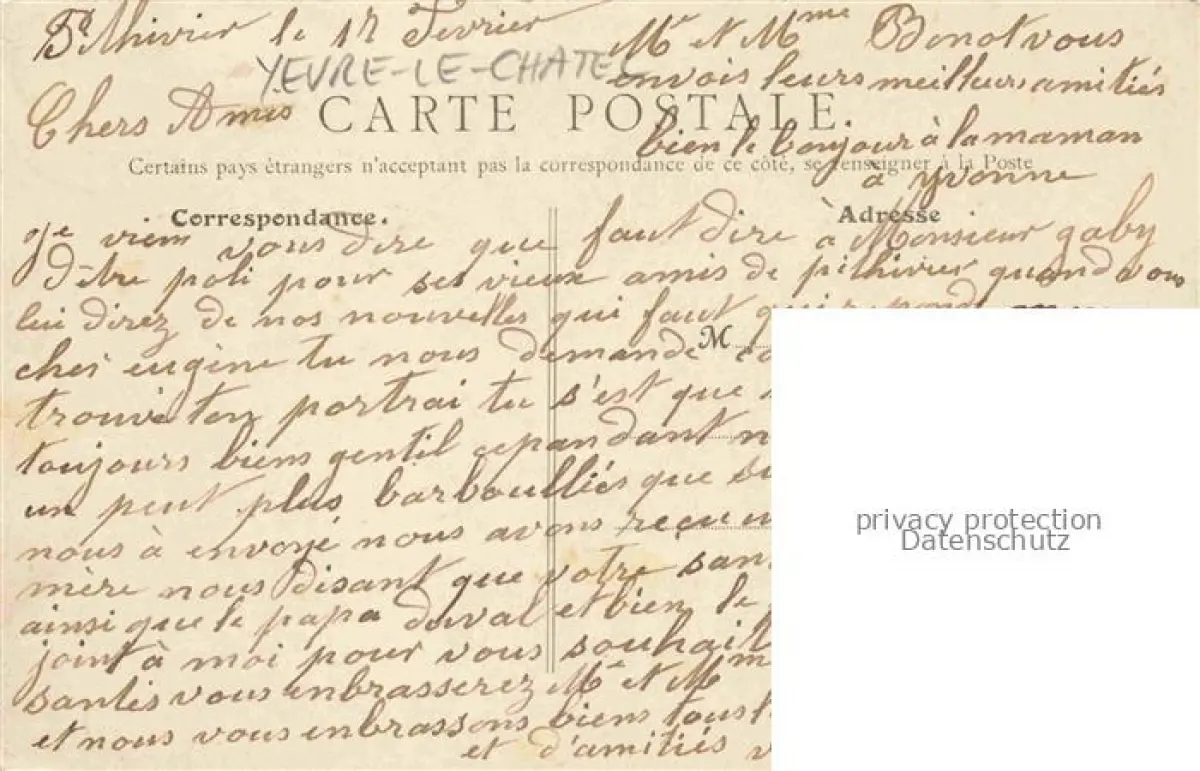 Pithivier le 17 Fevrier
Mr et Mme Benot vous
YEVRE-LE-CHATEL
envois leurs meilleurs amitiés
Chers Amis
CARTE POSTALE.
bien le bonjour à la maman
Certains pays étrangers n'acceptant pas la correspondance de ce côté, se renseigner à la Poste
à yvonne
Correspondance.
Adresse
Je viens vous dire que faut dire à Monsieur gaby
d'être poli pour ses vieux amis de pithivier quand vous
lui direz de nos nouvelles qui faut qui reponde
M
cher eugène tu nous demande
trouve ton portrai tu s'est que
toujours biens gentil cependant
un peut plus barboulliés que
nous à envoyé nous avons reçeu
mère nous disant que votre
ainsi que le papa duval et bien le
joint à moi pour vous
santés vous enbrasserez Mr et Mme
et nous vous enbrassons biens tous
et d'amitiés
privacy protection
Datenschutz